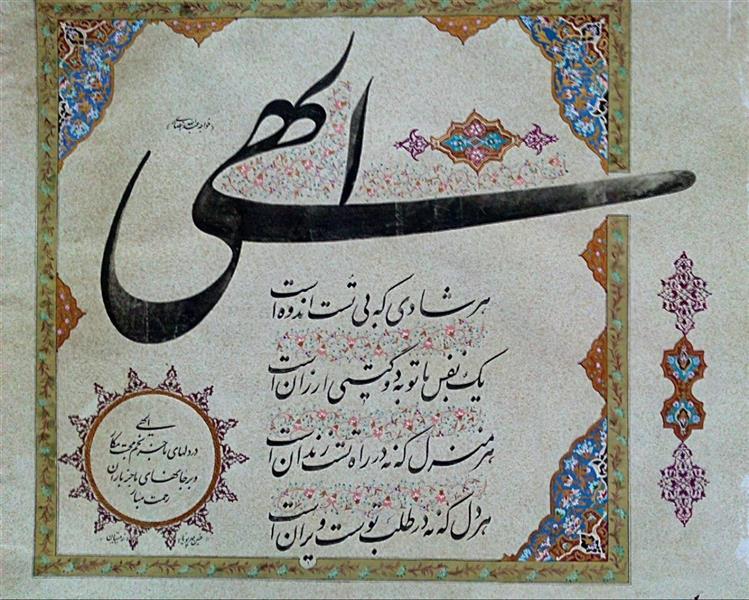 الهی
(خواجه عبدالله انصاری)
هر شادی که بی تُست اندوه است
یک نفس با تو به دو گیتی ارزان است
هر منزل که نه در راه تست زندان است
هر دل که نه در طلب تو ست ویران است
الهی
در دلهای ما جز تخم محبت مکار
و بر جانهای ما جز باران
رحمت مبار